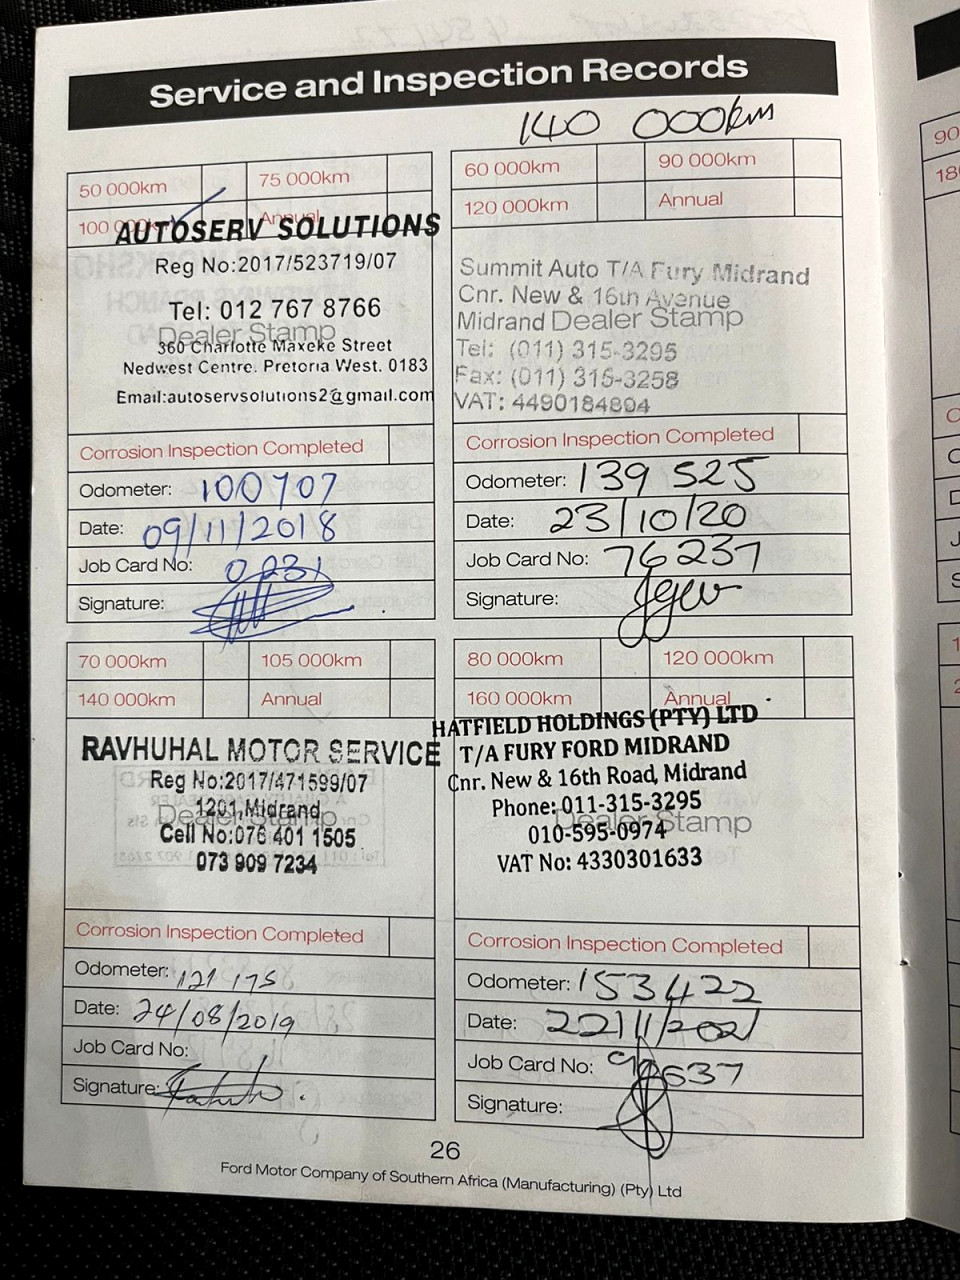 Service and Inspection Records
140 000km
50 000km 75 000km
100 000km Annual
AUTOSERV SOLUTIONS
Reg No:2017/523719/07
Tel: 012 767 8766
Dealer Stamp
360 Charlotte Maxeke Street
Nedwest Centre. Pretoria West. 0183
Email:autoservsolutions2@gmail.com
Corrosion Inspection Completed
Odometer: 100707
Date: 09/11/2018
Job Card No: 0231
Signature:
60 000km 90 000km
120 000km Annual
Summit Auto T/A Fury Midrand
Cnr. New & 16th Avenue
Midrand Dealer Stamp
Tel: (011) 315-3295
Fax: (011) 315-3258
VAT: 4490184804
Corrosion Inspection Completed
Odometer: 139 525
Date: 23/10/20
Job Card No: 76237
Signature:
70 000km 105 000km
140 000km Annual
RAVHUHAL MOTOR SERVICE
Reg No:2017/471599/07
1201,Midrand
Dealer Stamp
Cell No:076 401 1505
073 909 7234
Corrosion Inspection Completed
Odometer: 121 175
Date: 24/08/2019
Job Card No:
Signature:
80 000km 120 000km
160 000km Annual
HATFIELD HOLDINGS (PTY) LTD
T/A FURY FORD MIDRAND
Cnr. New & 16th Road, Midrand
Phone: 011-315-3295
Dealer Stamp
010-595-0974
VAT No: 4330301633
Corrosion Inspection Completed
Odometer: 153422
Date: 22/11/2021
Job Card No:
Signature:
26
Ford Motor Company of Southern Africa (Manufacturing) (Pty) Ltd